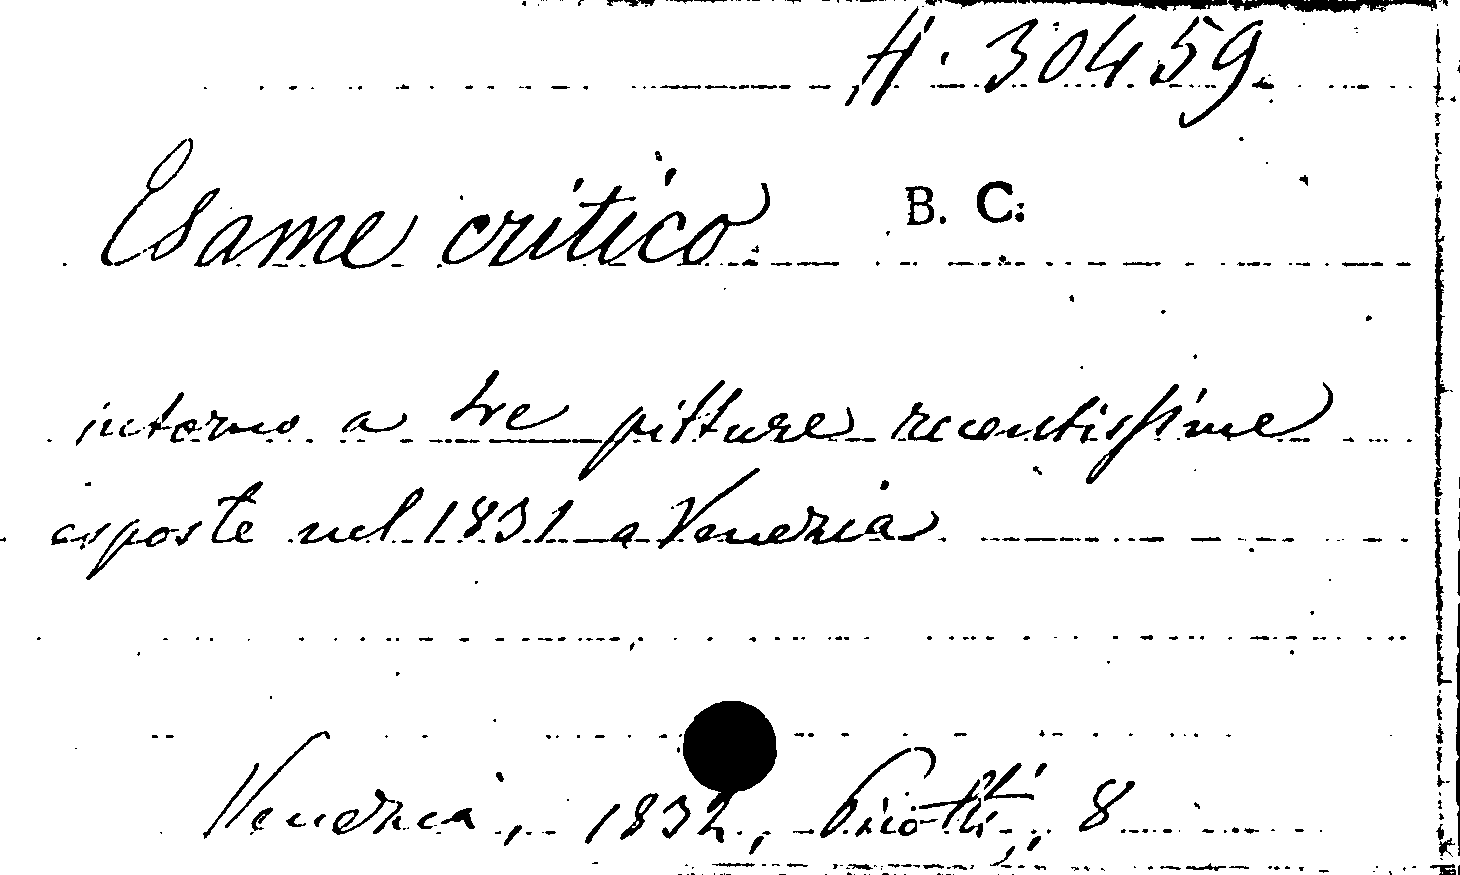 H. 30459.
Esame critico B. C.
intorno a tre pitture recentissime
esposte nel 1831 a Venezia
Venezia, 1832, Picotti, 8